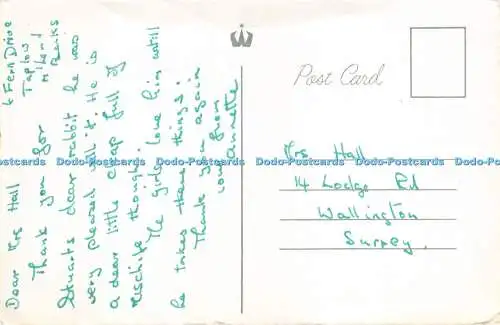 6 Fern Drive
Taplow
M'head
Bucks
Dear Mrs Hall
Thank you for
Stuarts dear rabbit he was
very pleased with it. He is
a dear little chap full of
mischife though.
The girls love him until
he takes there things!
Thank you again
love from
Annette
Post Card
Mrs Hall
14 Lodge Rd
Wallington
Surrey.
Dodo-Postcards Dodo-Postcards Dodo-Postcards Dodo-Postcards Dodo-Postcards